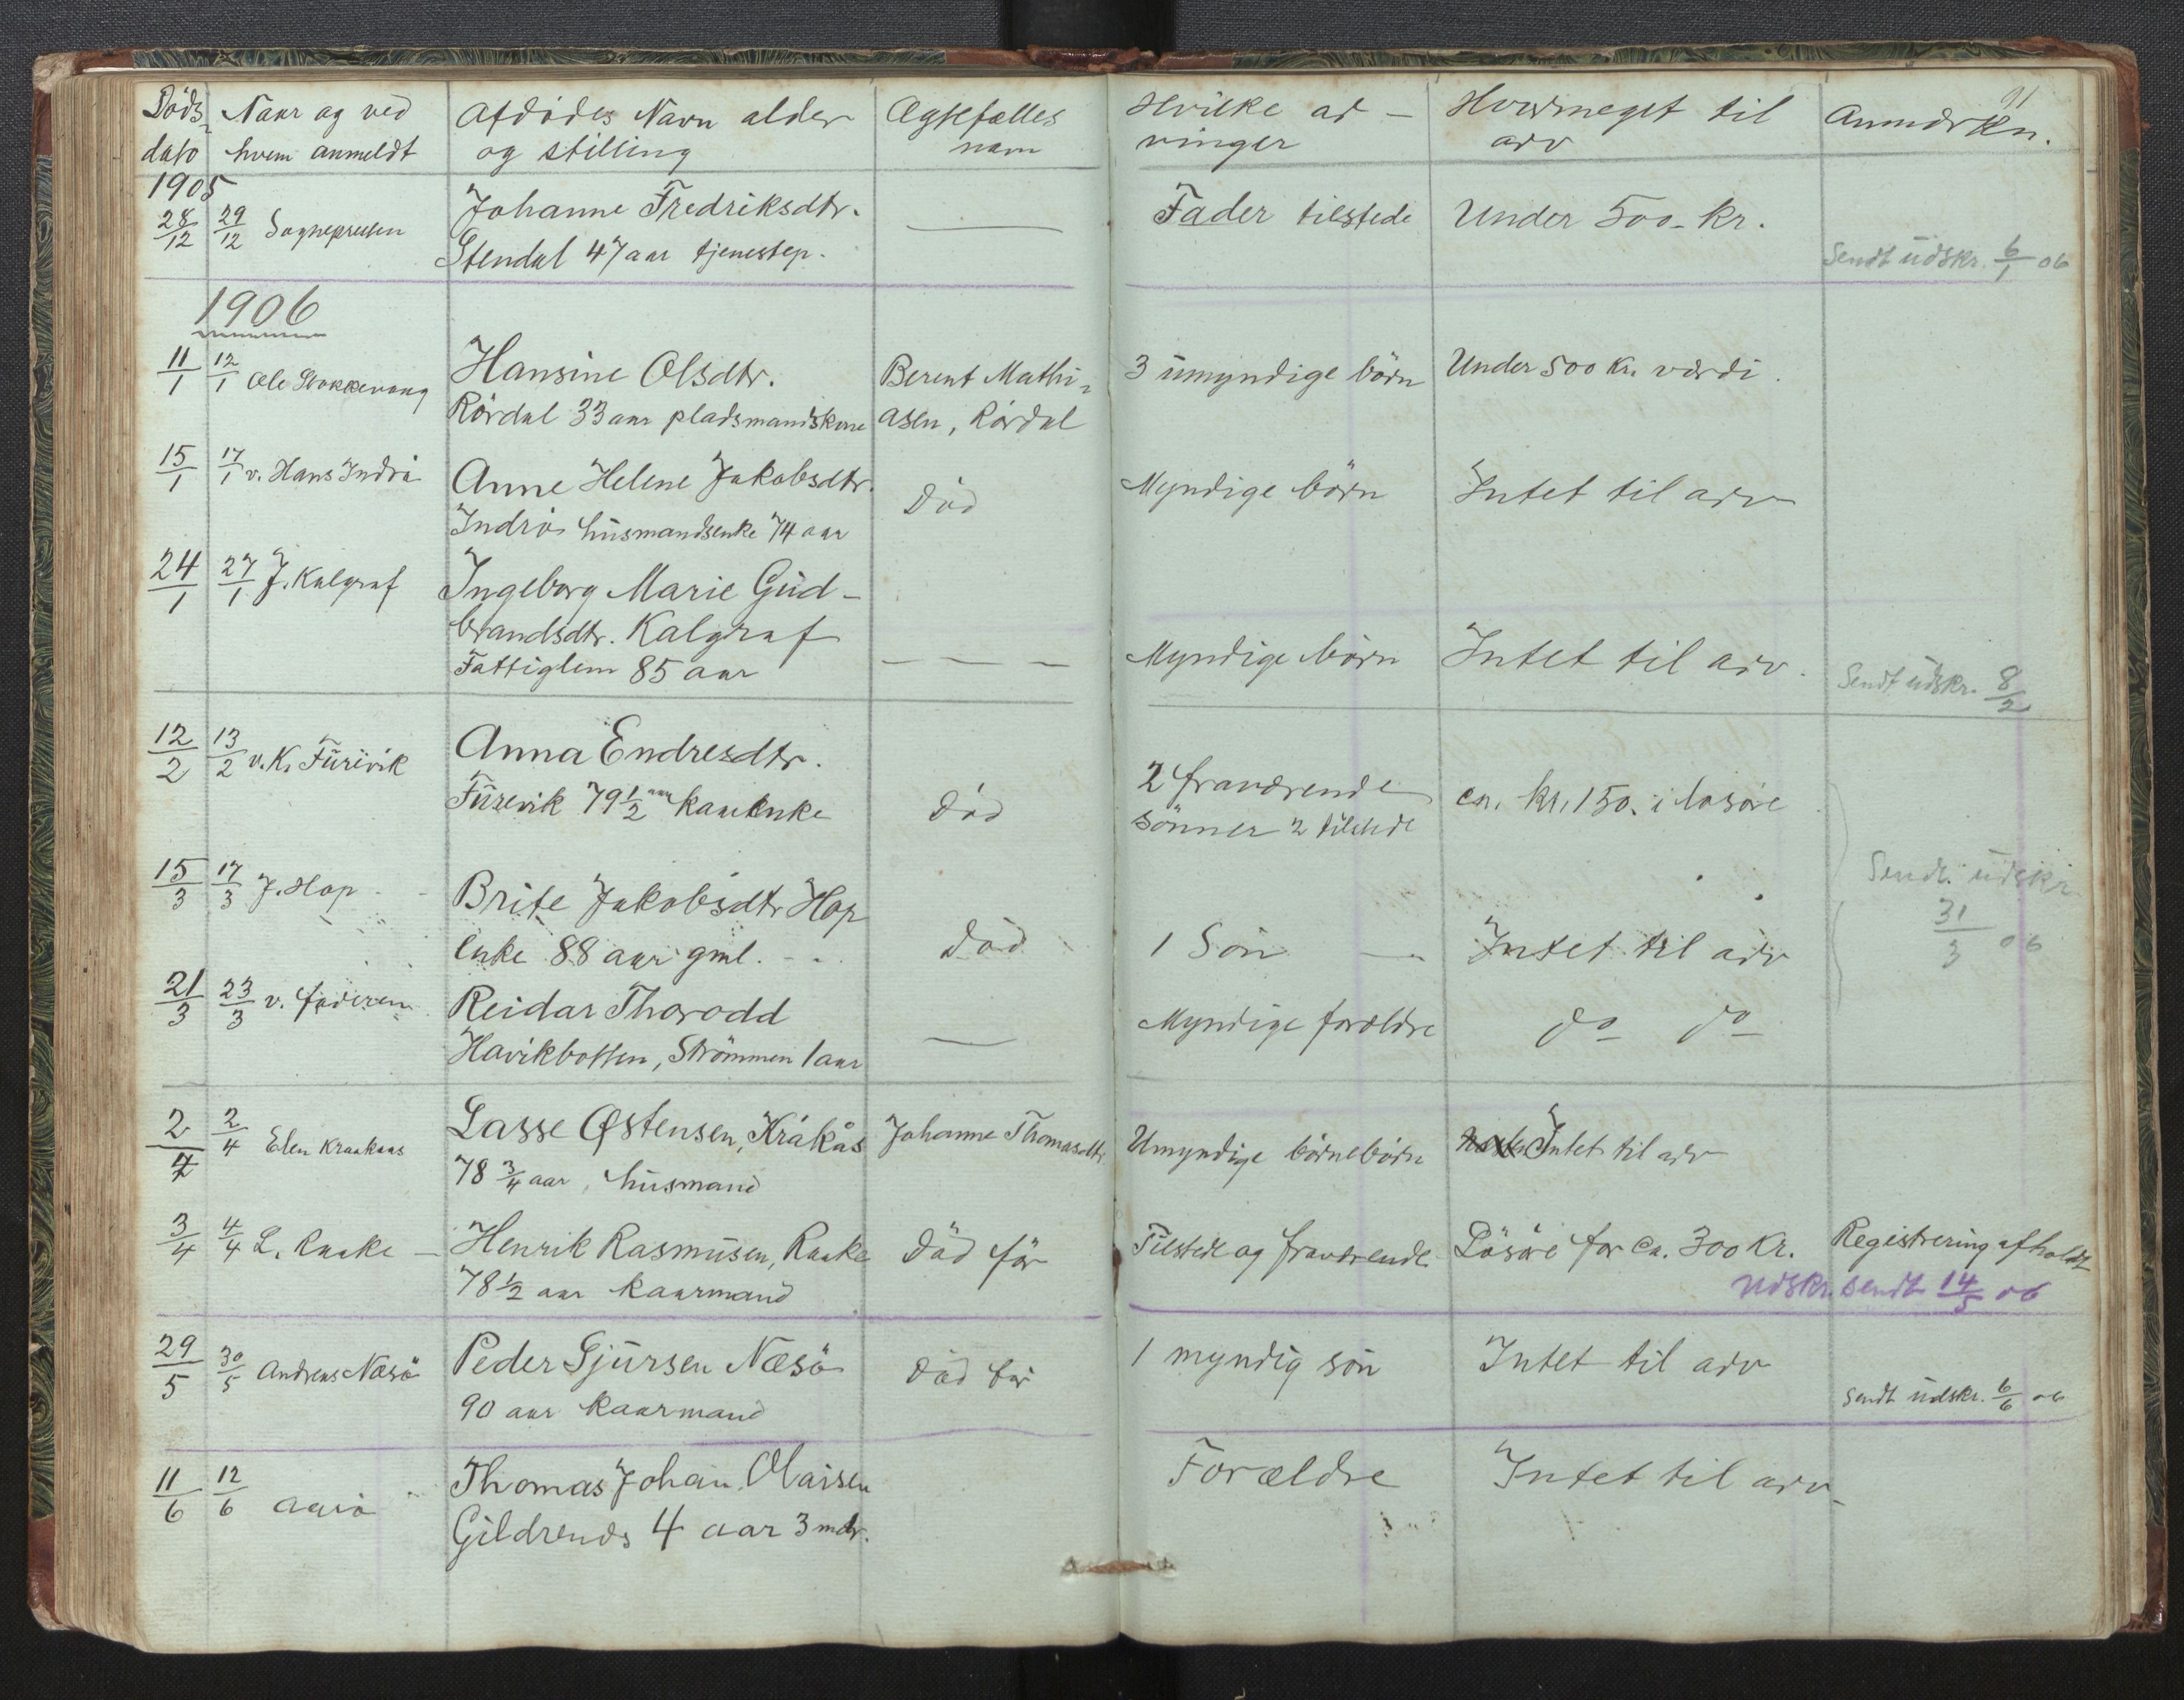 91
Döds- Naar og ved Afdödes Navn alder Ægtefælles Hvilke ar- Hvormeget til Anmærkn.
dato hvem anmeldt og stilling navn vinger arv
1905
28/12 29/12 Sognepresten Johanne Fredriksdtr. — Fader tilstede Under 500 kr.
Stendal 47 aar tjenestep. Sendt udskr. 6/1 06
1906
11/1 12/1 Ole Stokkevaag Hansine Olsdtr. Berent Mathi- 3 umyndige börn Under 500 kr. værdi.
Rördal 33 aar pladsmandskone asen, Rördal
15/1 17/1 v. Hans Indrö Anne Helene Jakobsdtr. Död Myndige börn Intet til arv
Indrö husmandsenke 74 aar
24/1 27/1 J. Kalgraf Ingeborg Marie Gud-
brandsdtr. Kalgraf
Fattiglem 85 aar — — — Myndige börn Intet til arv. Sendt udskr. 8/2
12/2 13/2 v. K. Furevik Anna Endresdtr. 2 fraværende ca. kr. 150. i lösöre
Furevik 79 1/2 aar kaarenke Död sönner 2 tilstede
15/3 17/3 J. Hop Brite Jakobsdtr Hop Sendt udskr
Enke 88 aar gml. död 1 Sön — Intet til arv 31/3 06
21/3 23/3 v. faderen Reidar Thorodd — Myndige forældre do do
Havikbotten, Strömmen 1 aar
2/4 2/4 Elen Kraakaas Lasse Østensen, Kråkås Johanne Thomasdtr. Umyndige börnebörn Intet til arv
78 3/4 aar, husmand
3/4 4/4 L. Raake — Henrik Rasmusen, Raake Död för Tilstede og fraværende Lösöre for ca. 300 Kr. Registrering afholdt
78 1/2 aar kaarmand Udskr. sendt 14/5 06
29/5 30/5 Andreas Næsö Peder Gjursen Næsö Död för 1 myndig sön Intet til arv
90 aar kaarmand Sendt udskr. 6/6 06
11/6 12/6 Thomas Johan Olaisen Forældre Intet til arv
Gildrenes 4 aar 3 mdr.